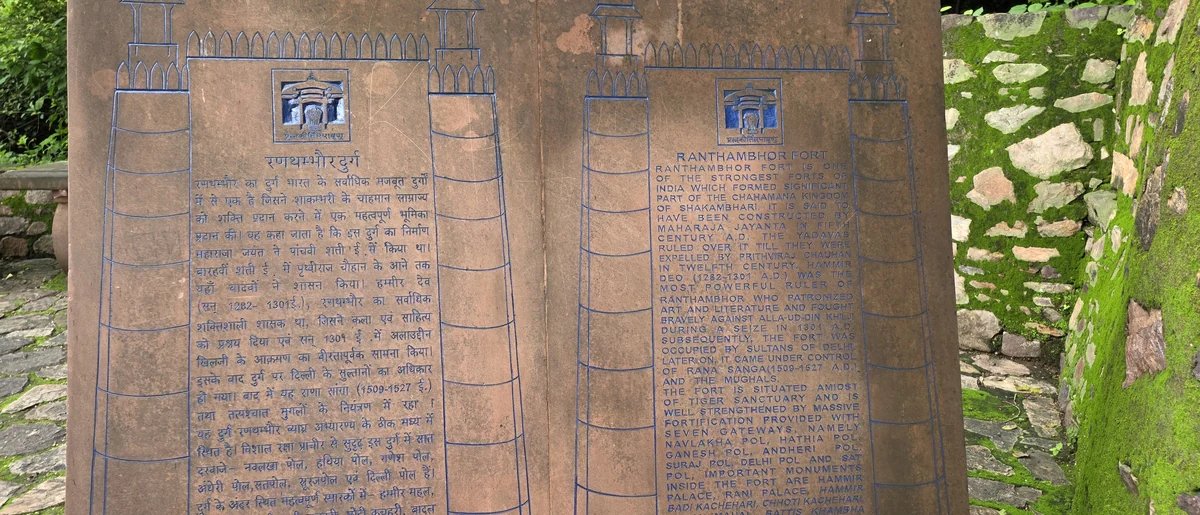 प्रत्नकीर्तिमपावृणु
रणथम्भौर दुर्ग
रणथम्भौर का दुर्ग भारत के सर्वाधिक मजबूत दुर्गों
में से एक है जिसने शाकम्भरी के चाहमान साम्राज्य
को शक्ति प्रदान करने में एक महत्वपूर्ण भूमिका
प्रदान की। यह कहा जाता है कि इस दुर्ग का निर्माण
महाराजा जयंत ने पांचवी शती ई. में किया था।
बारहवीं शती ई. में पृथ्वीराज चौहान के आने तक
यहाँ यादवों ने शासन किया। हम्मीर देव
(सन् 1282- 1301ई.), रणथम्भौर का सर्वाधिक
शक्तिशाली शासक था, जिसने कला एवं साहित्य
को प्रश्रय दिया एवं सन् 1301 ई. में अलाउद्दीन
खिलजी के आक्रमण का वीरतापूर्वक सामना किया।
इसके बाद दुर्ग पर दिल्ली के सुल्तानों का अधिकार
हो गया। बाद में यह राणा सांगा (1509-1527 ई.)
तथा तत्पश्चात मुगलों के नियंत्रण में रहा ।
यह दुर्ग रणथम्भौर व्याघ्र अभ्यारण्य के ठीक मध्य में
स्थित है। विशाल रक्षा प्राचीर से सुदृढ़ इस दुर्ग में सात
दरवाजे- नवलखा पोल, हथिया पोल, गणेश पोल,
अंधेरी पोल,सतपोल, सूरजपोल एवं दिल्ली पोल हैं।
दुर्ग के अंदर स्थित महत्वपूर्ण स्मारकों में- हम्मीर महल,
छोटी कचहरी, बादल
प्रत्नकीर्तिमपावृणु
RANTHAMBHOR FORT
RANTHAMBHOR FORT IS ONE
OF THE STRONGEST FORTS OF
INDIA WHICH FORMED SIGNIFICANT
PART OF THE CHAHAMANA KINGDOM
OF SHAKAMBHARI. IT IS SAID TO
HAVE BEEN CONSTRUCTED BY
MAHARAJA JAYANTA IN FIFTH
CENTURY A.D. THE YADAVAS
RULED OVER IT TILL THEY WERE
EXPELLED BY PRITHVIRAJ CHAUHAN
IN TWELFTH CENTURY. HAMMIR
DEO (1282-1301 A.D.) WAS THE
MOST POWERFUL RULER OF
RANTHAMBHOR WHO PATRONIZED
ART AND LITERATURE AND FOUGHT
BRAVELY AGAINST ALLA-UD-DIN KHILJI
DURING A SEIZE IN 1301 A.D.
SUBSEQUENTLY, THE FORT WAS
OCCUPIED BY SULTANS OF DELHI.
LATER ON, IT CAME UNDER CONTROL
OF RANA SANGA(1509-1527 A.D.)
AND THE MUGHALS.
THE FORT IS SITUATED AMIDST
OF TIGER SANCTUARY AND IS
WELL STRENGTHENED BY MASSIVE
FORTIFICATION PROVIDED WITH
SEVEN GATEWAYS, NAMELY
NAVLAKHA POL, HATHIA POL,
GANESH POL, ANDHERI POL,
SURAJ POL, DELHI POL AND SAT
POL, IMPORTANT MONUMENTS
INSIDE THE FORT ARE HAMMIR
PALACE, RANI PALACE, HAMMIR
BADI KACHEHARI, CHHOTI KACHEHARI
MAHAL, BATTIS KHAMBHA